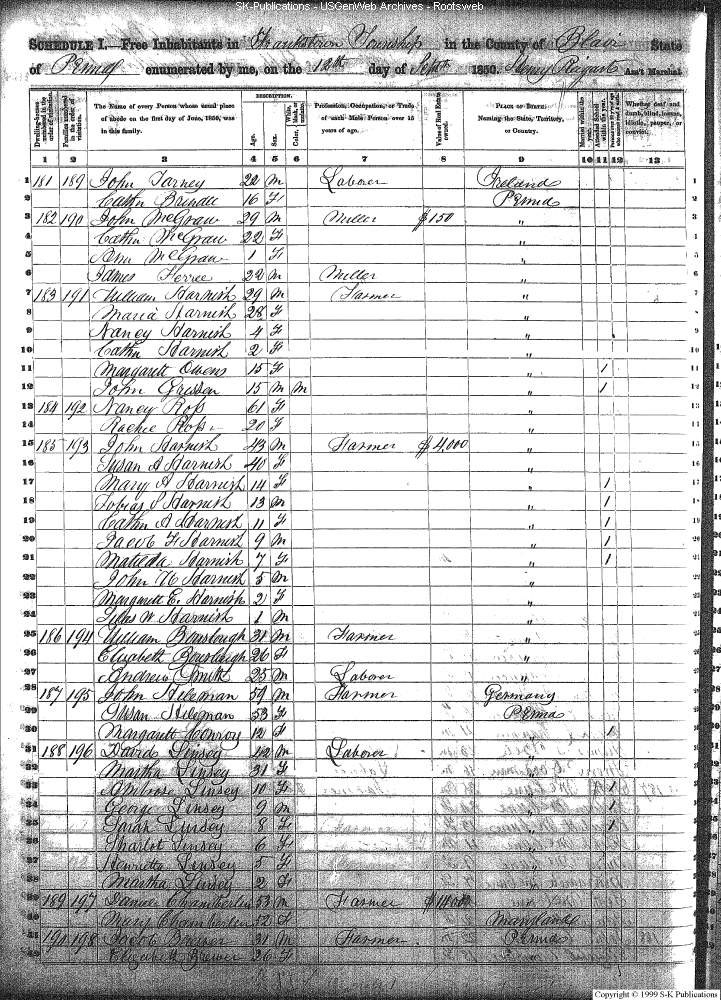 SK-Publications - USGenWeb Archives - Rootsweb
SCHEDULE I.—Free Inhabitants in Frankstown Township in the County of Blair State
of Penna enumerated by me, on the 12th day of Sept 1850. Ass't Marshal
DESCRIPTION.
The Name of every Person whose usual place of abode on the first day of June, 1850, was in this family.
Age.
Sex.
Profession, Occupation, or Trade of each Male Person over 15 years of age.
Value of Real Estate owned.
PLACE OF BIRTH. Naming the State, Territory, or Country.
1 2 3 4 5 6 7 8 9 10 11 12 13
1 181 189 John Tarney 22 M Laborer Ireland 1
2 Cathn 16 F Penna 2
3 182 190 John McGraw 29 M Miller $150 " 3
4 Cathn McGraw 22 F " 4
5 Ann McGraw 1 F " 5
6 James Ferree 22 M Miller " 6
7 183 191 William Harnish 29 M Farmer " 7
8 Maria Harnish 28 F " 8
9 Nancy Harnish 4 F " 9
10 Cathn Harnish 2 F " 10
11 Margarett Owens 15 F " 1 11
12 John 15 M M " 1 12
13 184 192 Nancy Ross 61 F " 13
14 Ross 20 F " 14
15 185 193 John Harnish 43 M Farmer $4,000 " 15
16 Susan A Harnish 40 F " 16
17 Mary A Harnish 14 F " 1 17
18 Tobias S Harnish 13 M " 1 18
19 Cathn A Harnish 11 F " 1 19
20 Jacob F Harnish 9 M " 1 20
21 Matilda Harnish 7 F " 1 21
22 John Harnish 5 M "
23 Margarett E. Harnish 2 F "
24 Silas W. Harnish 1 M "
25 186 194 William Bouslough 31 M Farmer "
26 Elizabeth Bouslough 26 F "
27 Andrew Smith 25 M Laborer "
28 187 195 John Hileman 59 M Farmer Germany
29 Susan Hileman 53 F Penna
30 Margarett Conroy 12 F " 1
31 188 196 David Linsey 42 M Laborer "
32 Martha Linsey 31 F "
33 Ambrose Linsey 10 F " 1
George Linsey 9 M " 1
Sarah Linsey 8 F " 1
Sharlot Linsey 6 F "
Henrietta Linsey 5 F "
Martha Linsey 2 F "
189 197 Daniel Chamberlin 53 M Farmer "
Mary Chamberlin 52 F Maryland
190 198 Jacob Brewer 31 M Farmer Penna
Elizabeth Brewer 36 F "
Copyright © 1999 S-K Publications